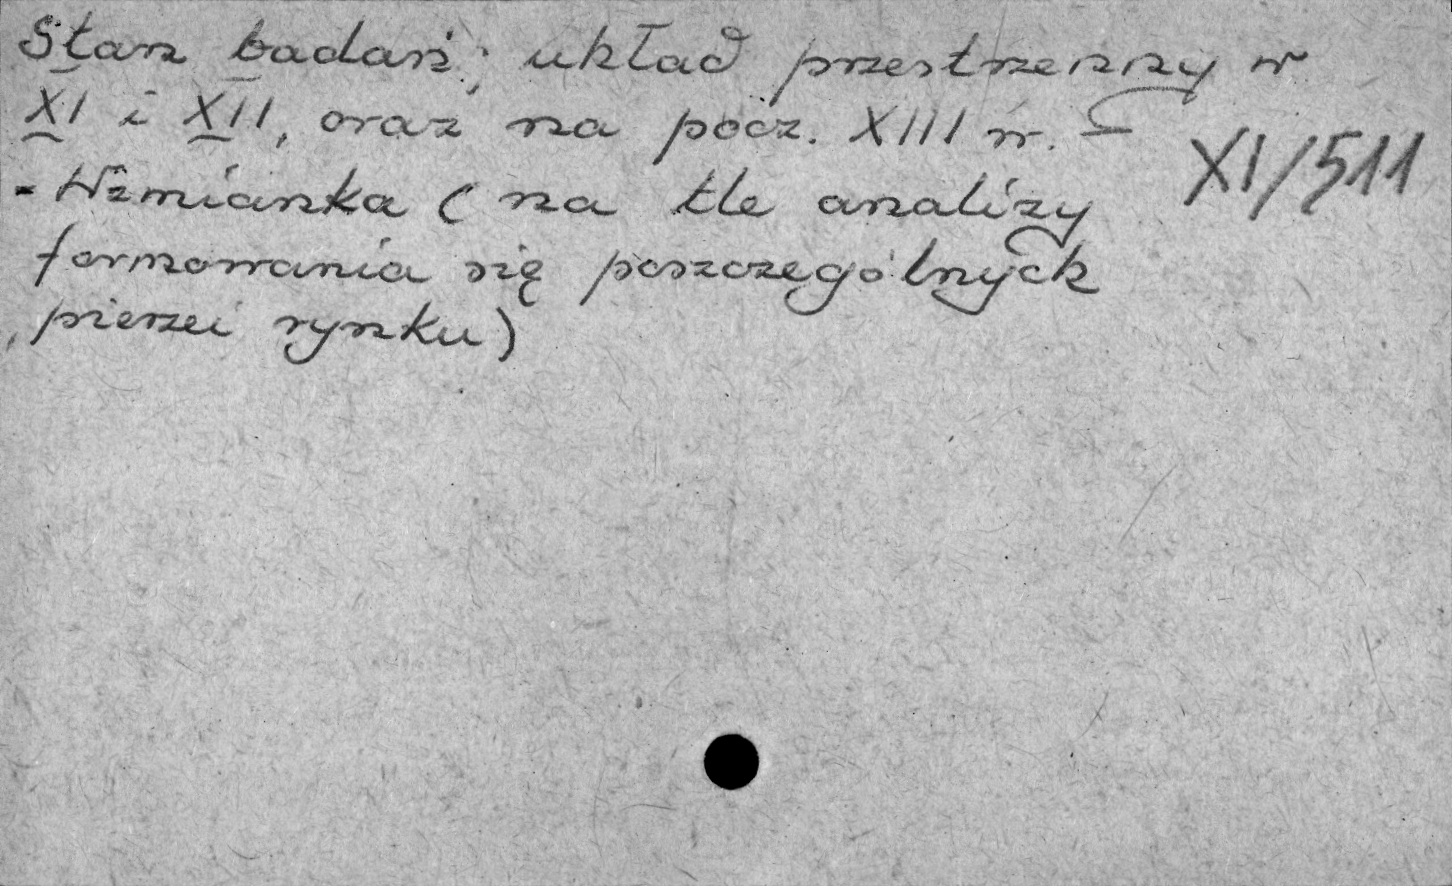 Stan badań; układ przestrzenny w
XI i XII, oraz na pocz. XIII w. -
XI/511
- Wzmianka (na tle analizy
formowania się poszczególnych
pierzei rynku)